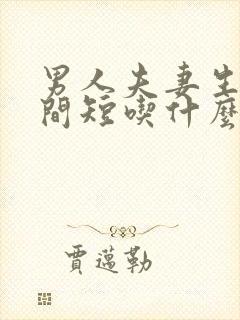 男人夫妻生
間短喫什麼
賈邁勒